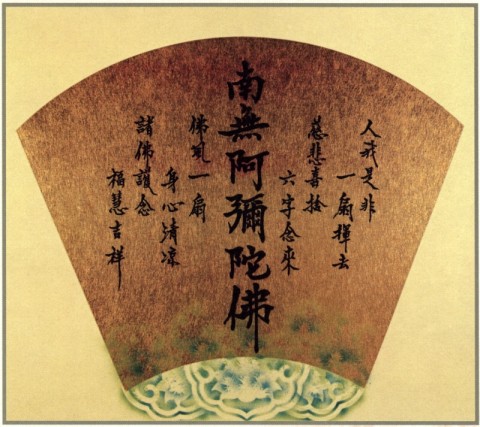 人我是非
一扇揮去
慈悲喜捨
六字念來
南無阿彌陀佛
佛風一扇
身心清涼
諸佛護念
福慧吉祥